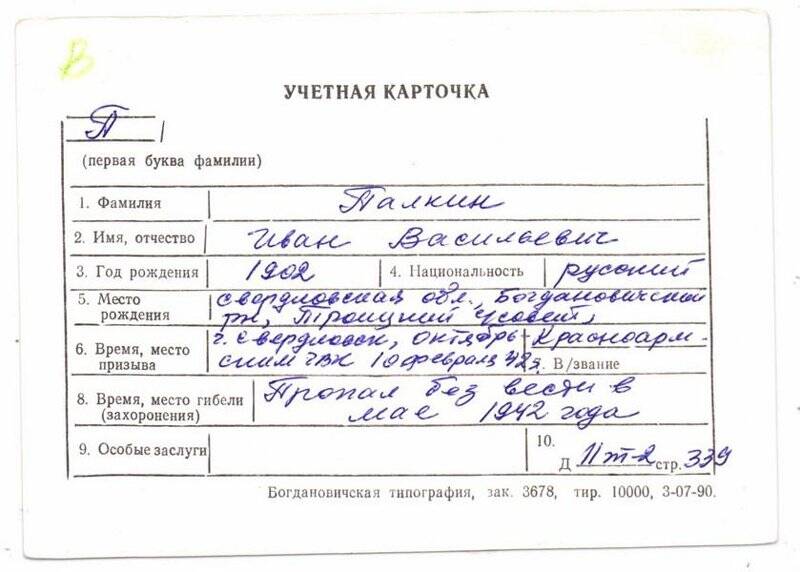 В
УЧЕТНАЯ КАРТОЧКА
П
(первая буква фамилии)
1. Фамилия Палкин
2. Имя, отчество Иван Васильевич
3. Год рождения 1902 4. Национальность русский
5. Место рождения свердловская обл., Богдановичский
рн, Троицкий
6. Время, место призыва г. Свердловск, октябрь-
ским ГВК 10 февраля 42г.
Красноарм-
7. В/звание
8. Время, место гибели (захоронения) Пропал без вести в
мае 1942 года
9. Особые заслуги
10.
Д 11 т-2 стр. 339
Богдановичская типография, зак. 3678, тир. 10000, 3-07-90.